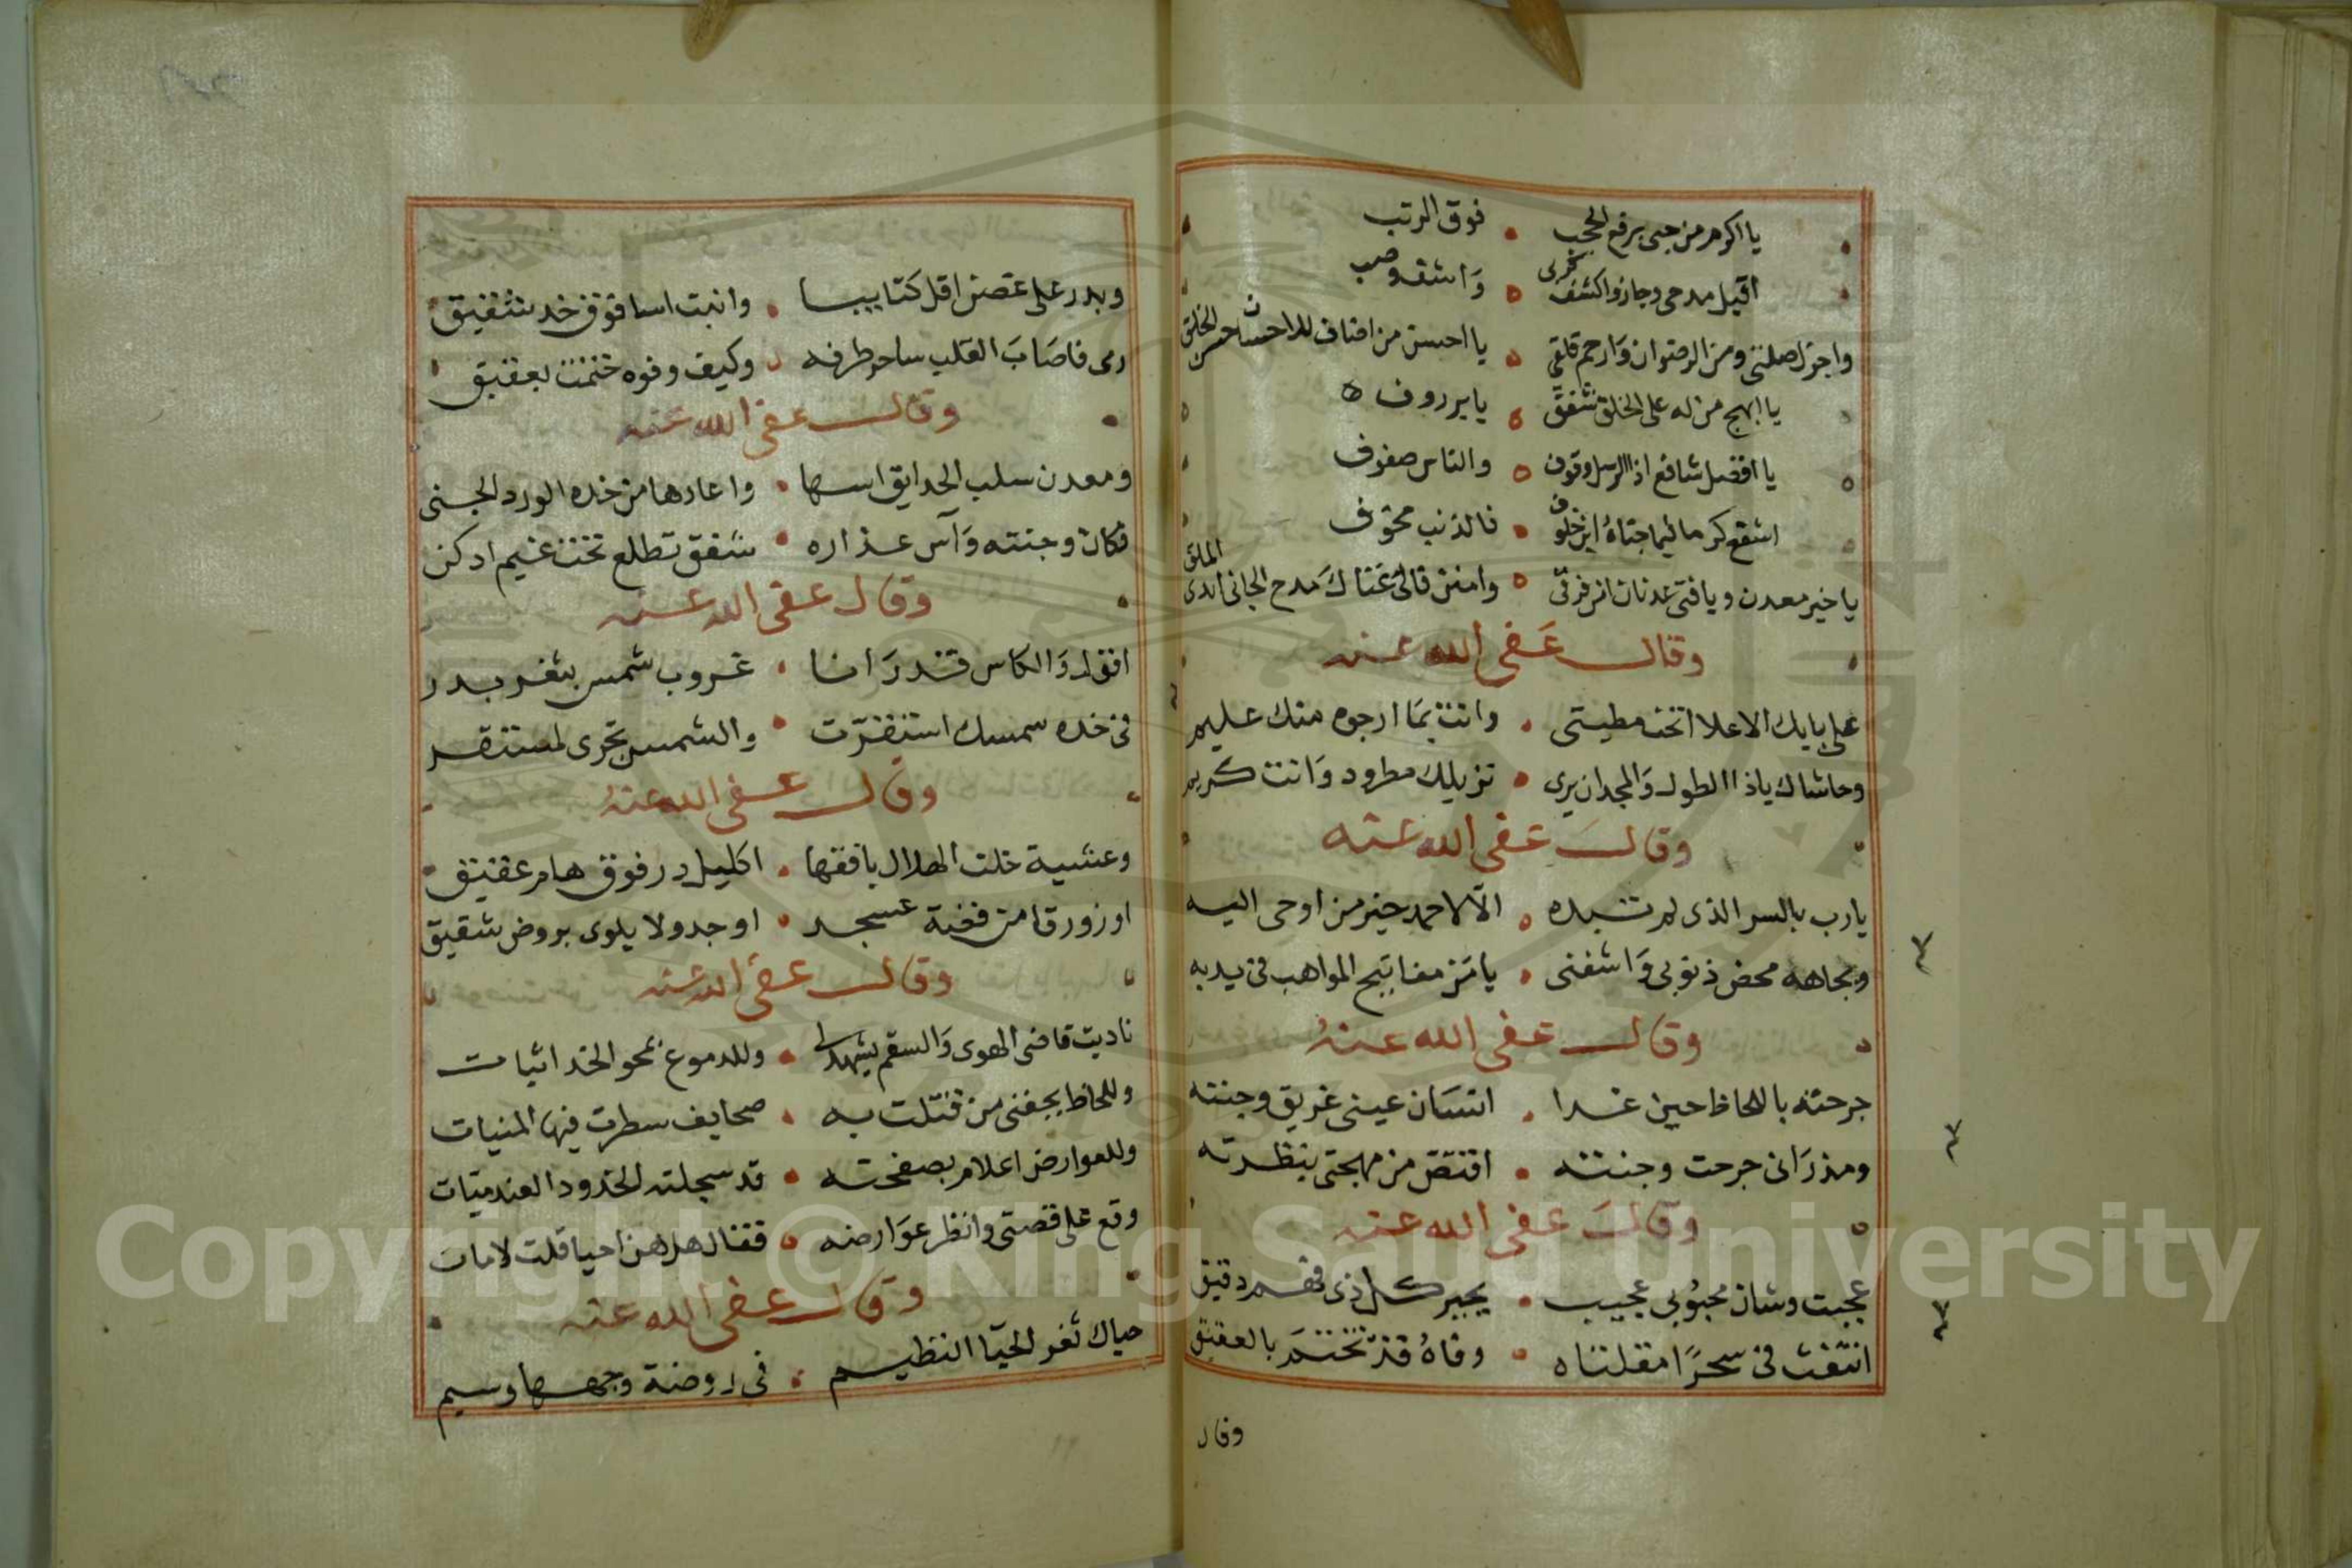 يا اكرم من حبى برفع الحجب • فوق الرتب
اقبل مدحى وجاز واكشف كربى • واشف وصب
واجزل صلتى ومن الرضوان وارحم قلقى • يا احسن من اضاف للاحسان حسن الخلق
يا ابهج من له على الخلق شفق • يا بر روف
يا افضل شافع اذا الرسل وقوف • والناس صفوف
اشفع كرما لما جناه ابن خلوف • فالذنب مخوف
يا خير معدن ويا فتى عدنان • مدح الجانى الملق
وقال عفى الله عنه
على بابك الاعلا انخت مطيتى • وانت بما ارجوه منك عليم
وحاشاك ياذا الطول والمجد ان يرى • نزيلك مطرود وانت كريم
وقال عفى الله عنه
يارب بالسر الذى لم تبده • الا لاحمد خير من اوحى اليه
وبجاهه محض ذنوبى واشفنى • يا من مفاتيح المواهب فى يديه
وقال عفى الله عنه
جرحته باللحاظ حين غدا • انسان عينى غريق وجنته
ومذ رانى جرحت وجنته • اقتص من مهجتى بنظرته
وقال عفى الله عنه
عجبت وشان محبوبى عجيب • يحير كل ذى فهم دقيق
انتفث فى سحرا مقلتاه • وفاه قد تختم بالعقيق
وقال
وبدر على غصن اقل كتايبا • وانبت اسا فوق خد شقيق
رمى فاصاب القلب ساحر طرفه • وكيف وفوه ختمت بعقيق
وقال عفى الله عنه
ومعدن سلب الحدايق اسها • واعادها من خده الورد الجنى
فكان وجنته وآس عذاره • شفق تطلع تحت غيم ادكن
وقال عفى الله عنه
اقول والكاس قد رانا • غروب شمس بثغر بدر
فى خده سمسك استقرت • والشمس تجرى لمستقر
وقال عفى الله عنه
وعشية خلت الهلال بافقها • اكليل در فوق هام عقيق
او زورقا من فضة عسجد • او جدولا يلوى بروض شقيق
وقال عفى الله عنه
ناديت قاضى الهوى والسقم يشهد لى • وللدموع نمحو الخد اثبات
وللحاظ بجفنى من قتلت به • صحايف سطرت فيها المنيات
وللعوارض اعلام بصفحته • قد سجلته الخدود العندميات
وقع على قصتى وانظر عوارضه • فقال هل هن احيا قلت لامات
وقال عفى الله عنه
حياك ثغر الحيا النظيم • فى روضة وجهها وسيم
Copyright © King Saud University